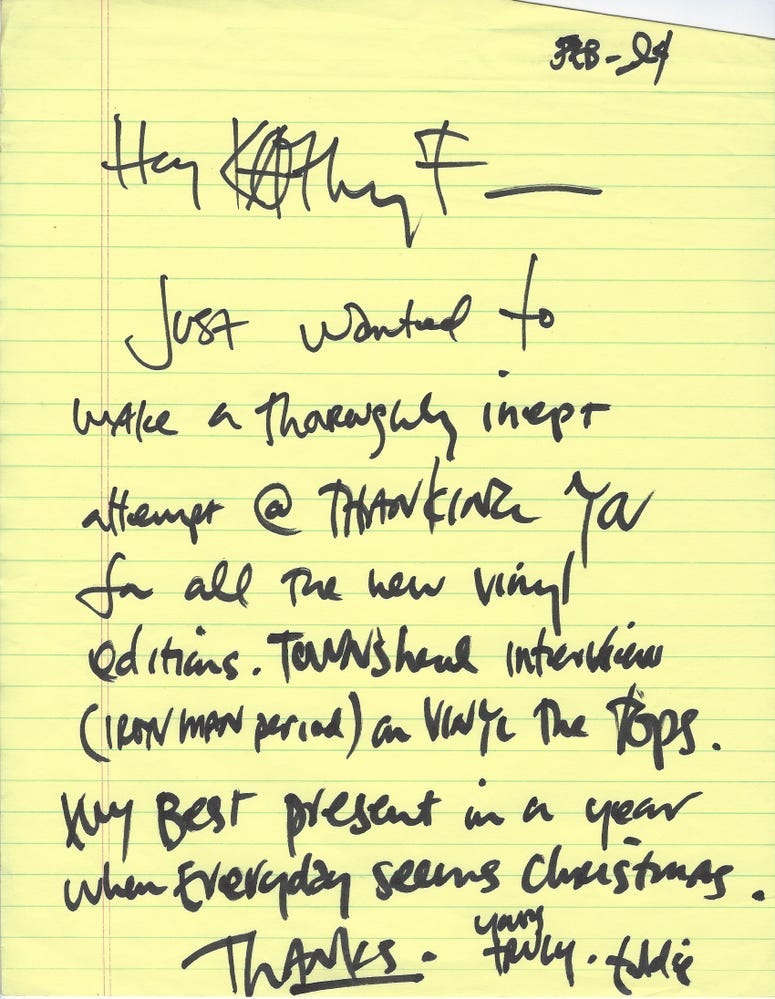 FEB-94
Hey KAthy F ——
Just wanted to
make a thoroughly inept
attempt @ THANKING Ya
for all the new vinyl
editions. TOWNshend interview
(IRON MAN period) on VINYL The TOPS.
My BEST present in a year
when Everyday seems Christmas.
THANKS. yours
truly. Eddie